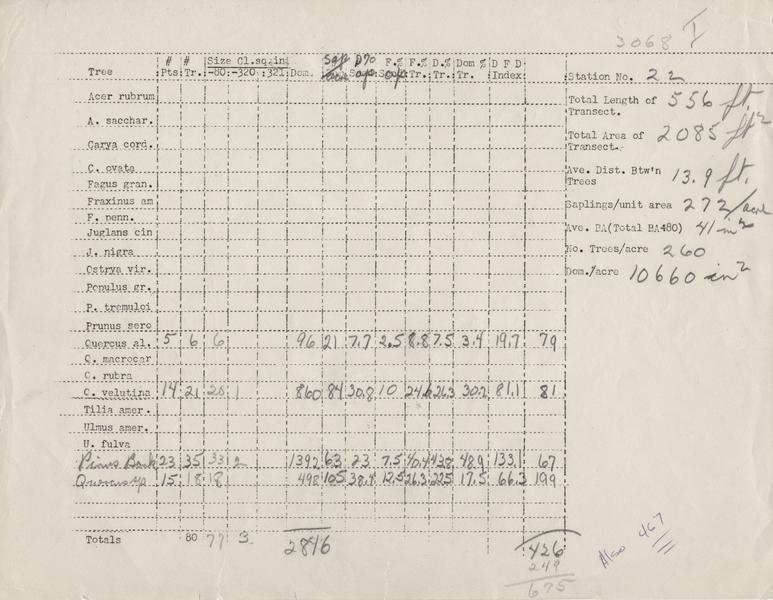 3068 I
Tree # Pts. # Tr. Size Cl.sq.in. -80: -320: :321 Dom. Sap D% Sap. F.% Sap F.% Tr. D.% Tr. Dom % Tr. D F D Index
Station No. 22
Acer rubrum
Total Length of Transect. 556 ft.
A. sacchar.
Total Area of Transect. 2085 ft²
Carya cord.
C. ovata
Ave. Dist. Btw'n Trees 13.9 ft.
Fagus gran.
Fraxinus am
Saplings/unit area 272/acre
F. penn.
Juglans cin
Ave. BA(Total BA÷80) 41 in²
J. nigra
No. Trees/acre 260
Ostrya vir.
Dom./acre 10660 in²
Populus gr.
P. tremuloi
Prunus sero
Quercus al. 5 6 6 96 21 7.7 2.5 8.8 7.5 3.4 19.7 79
Q. macrocar
Q. rubra
Q. velutina 14 21 20 1 860 84 30.8 10 24.6 26.3 30.2 81.1 81
Tilia amer.
Ulmus amer.
U. fulva
Pinus Bank 23 35 33 2 1392 63 23 7.5 40.4 43.8 48.9 133.1 67
Quercus 15 18 18 498 105 38.4 12.5 26.3 22.5 17.5 66.3 199
Totals 80 77 3 2846 426
249
675
Also 467